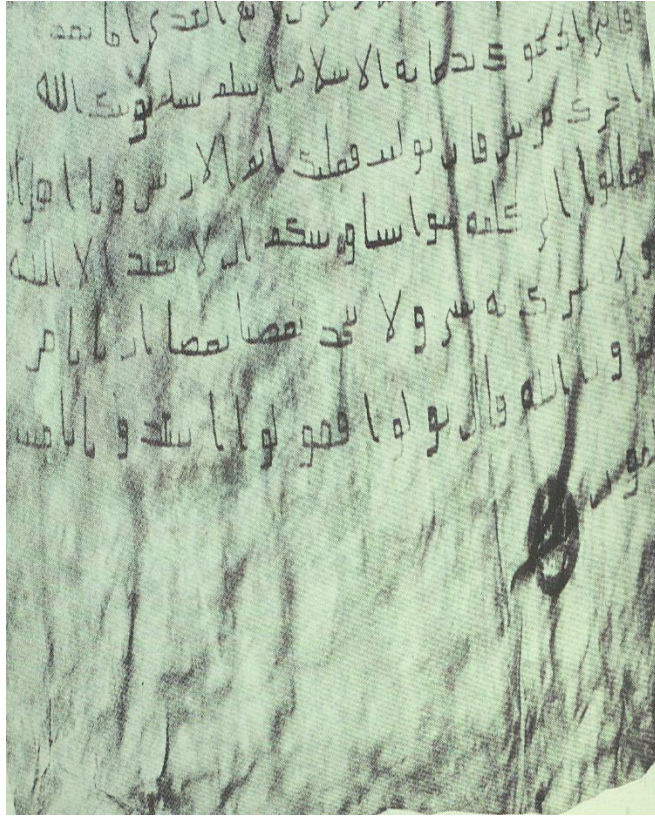 اتبع الهدى اما بعد
فانى ادعوك بدعاية الاسلام اسلم تسلم يوتك الله
اجرك مرتين فان توليت فعليك اثم الاريسين ويا اهل
تعالوا الى كلمة سوا بيننا وبينكم ان لا نعبد الا الله
ولا نشرك به شى ولا يتخذ بعضنا بعضا اربابا من
دون الله فان تولوا فقولوا اشهدوا بانا مسـ
ـلمون